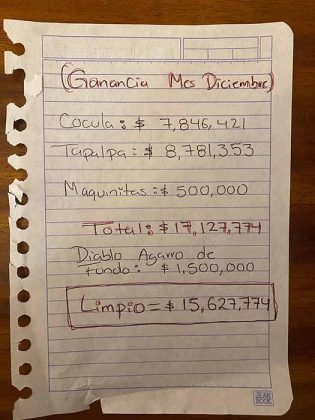 (Ganancia Mes Diciembre)
Cocula: $ 7,846,421
Tapalpa: $ 8,781,353
Maquinitas: $ 500,000
Total: $ 17,127,774
Diablo Agarro de
fondo: $ 1,500,000
Limpio = $ 15,627,774
JEAN
BOOK